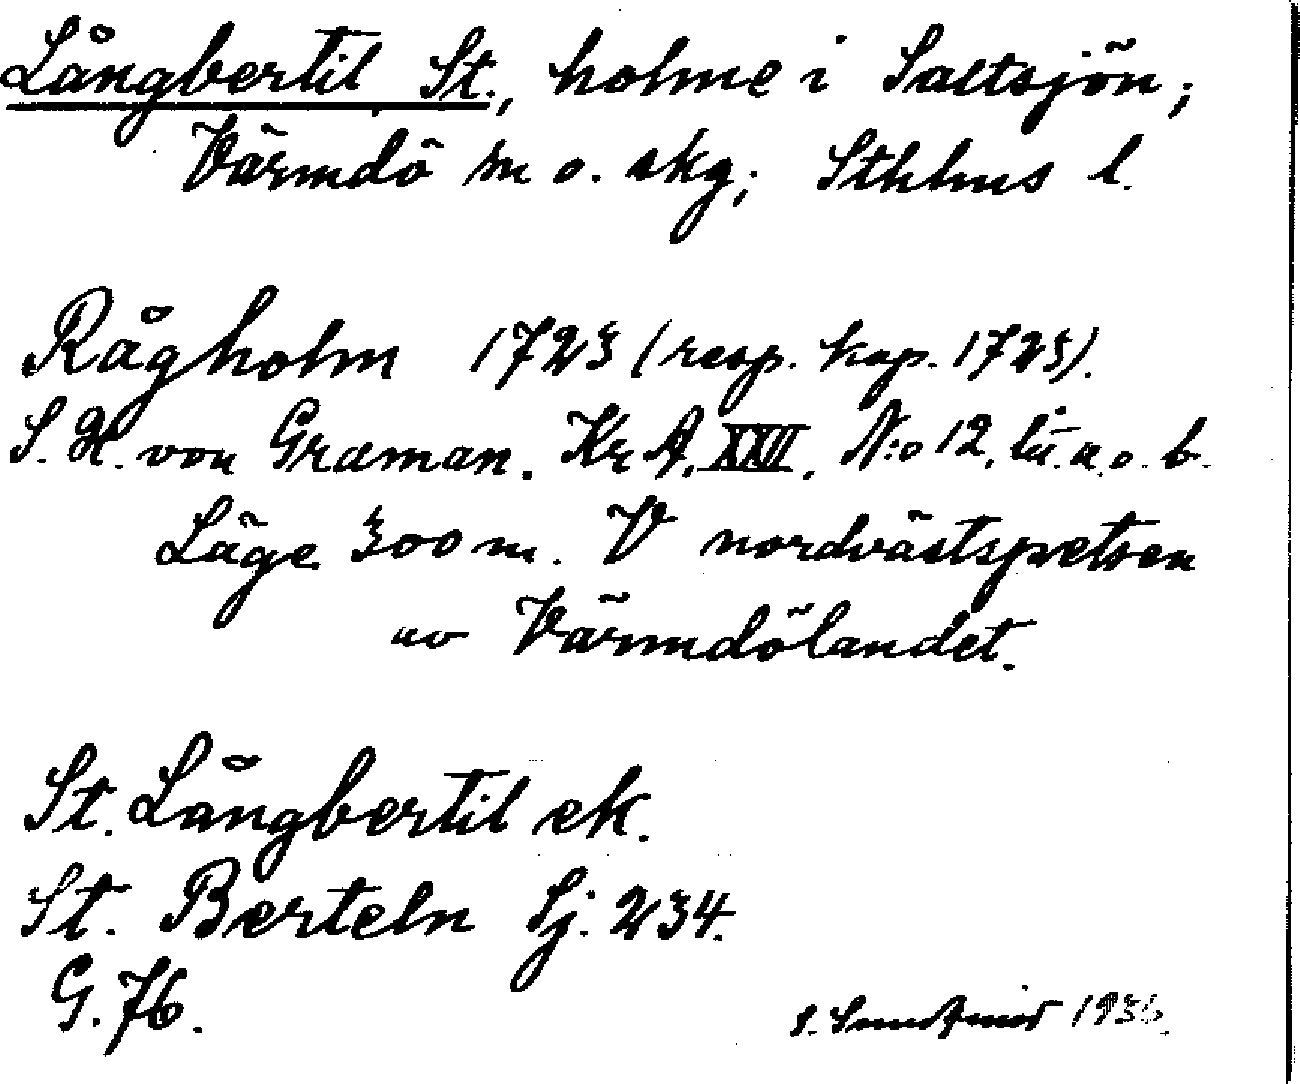 Långbertil, St., holme i Saltsjön;
Värmdö sn o. skg; Sthlms l.
Rågholm 1723 (resp. kop. 1723).
S. H. von Graman. Kr A, XXII. N:o 12, lit. a. o. b.
Läge 300 m. V nordvästspetsen
av Värmdölandet.
St. Långbertil ek.
St. Berteln Sj. 234.
G. 76.
1936